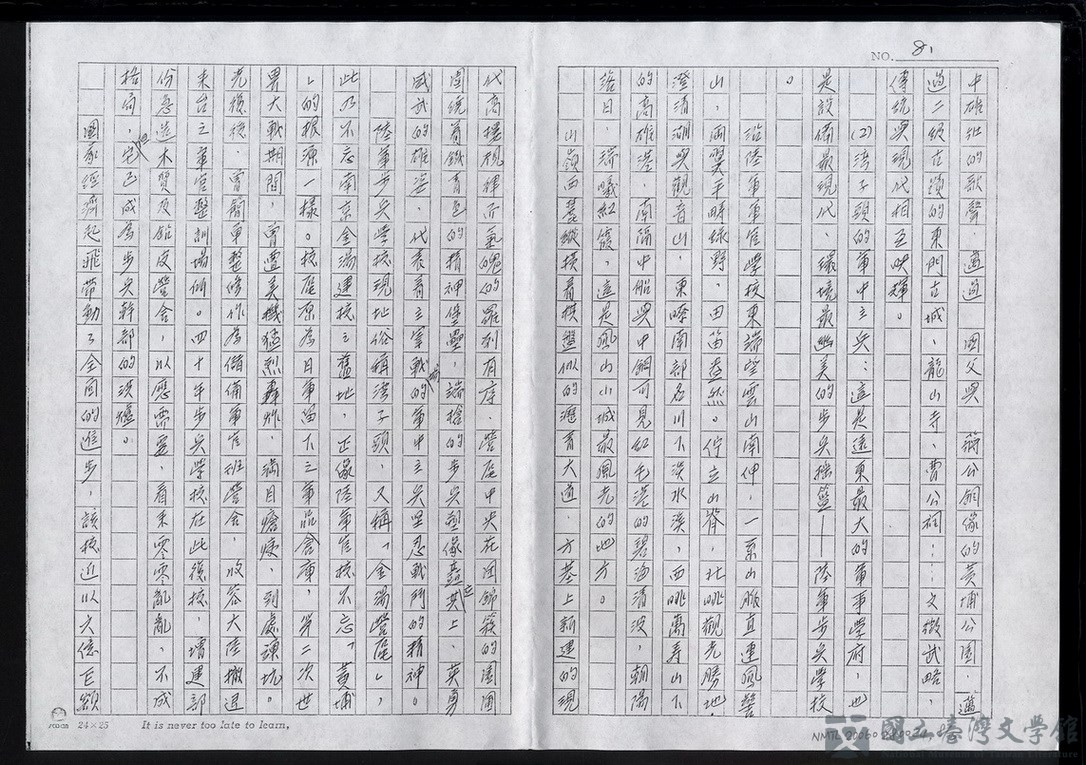 NO. 81
中雄壯的歌聲．邁過　國父與　蔣公銅像的黃埔公園．邁
過二級古蹟的東門古城、龍山寺、曹公祠……文徽武略，
傳統與現代相互映輝。
(2)灣子頭的軍中之兵：這是遠東最大的軍事學府，也
是設備最現代、環境最幽美的步兵搖籃——陸軍步兵學校
。
沿陸軍軍官學校東端望雲山南伸．一系山脈直連鳳鼻
山，兩翼平疇綠野、田笛盎然。佇立山脊，北眺觀光勝地
澄清湖與觀音山，東瞰南部名川下淡水溪，西眺萬壽山下
的高雄港．南隔中船與中鋼可見紅毛港的碧海清波，朝陽
落日，瑞曦紅霞，這是鳳山山城最風光的地方。
山嶺西麓縱橫着棋盤似的瀝青大道．方基上新建的現
代高樓視褌而氣魄的羅列有序．營區中央花團錦簇的園圃
圍繞着鐵青色的精神堡壘，端槍的步兵塑像矗立其上，英勇
威武的雄姿，代表着主宰戰場的軍中之兵堅忍戰鬥的精神。
陸軍步兵學校現址俗稱灣子頭，又稱「金湯營區」，
此乃不忘南京金湯建校之舊地，正像陸軍官校不忘「黃埔
」的根源一樣。校區原為日軍留下之軍品倉庫，第二次世
界大戰期間，曾遭美機猛烈轟炸，滿目瘡痍，到處彈坑。
光復後．曾簡單整修作為儲備軍官班營舍，收容大陸撤退
來台之軍官整訓場所。四十年步兵學校在此復校，增建部
份急造木質及鋁皮營舍，以應需要，看來零零亂亂，不成
格局，但它已成為步兵幹部的洪爐。
國家經濟起飛帶動了全面的進步，該校近以六億巨額
24×25
It is never too late to learn,
國立臺灣文學館
National Museum of Taiwan Literature